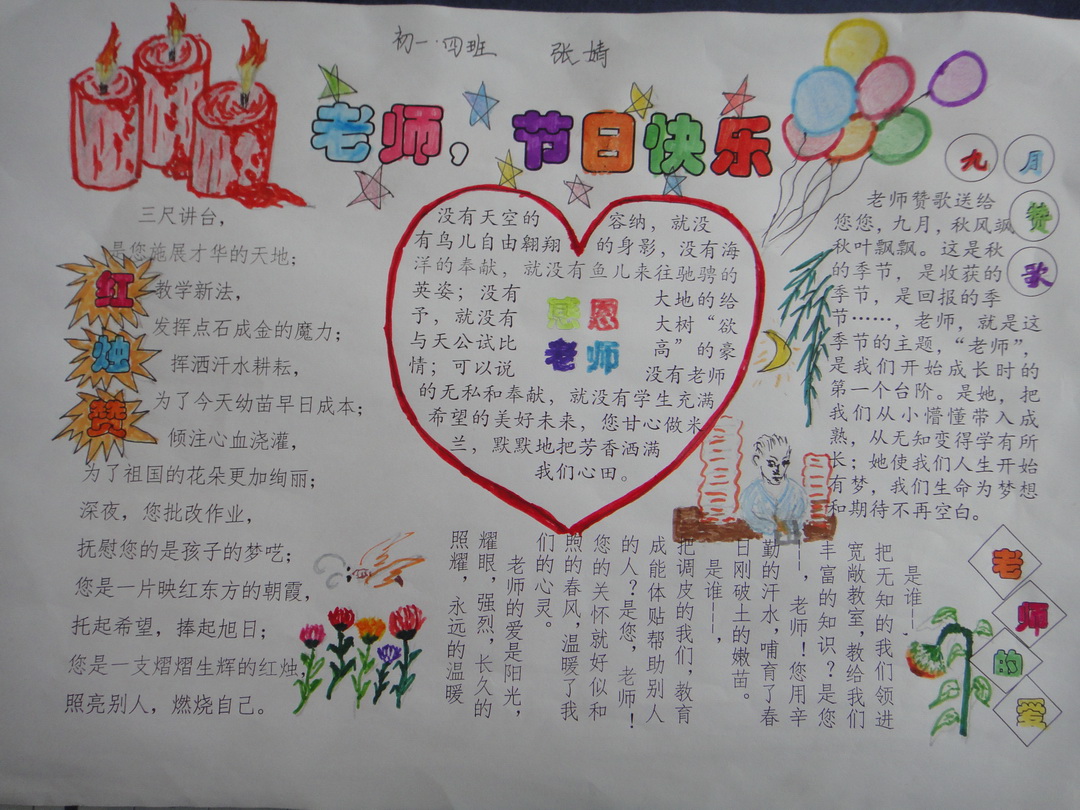 初一·四班 张婧
老师，节日快乐
红烛赞
三尺讲台，
是您施展才华的天地；
教学新法，
发挥点石成金的魔力；
挥洒汗水耕耘，
为了今天幼苗早日成本；
倾注心血浇灌，
为了祖国的花朵更加绚丽；
深夜，您批改作业，
抚慰您的是孩子的梦呓；
您是一片映红东方的朝霞，
托起希望，捧起旭日；
您是一支熠熠生辉的红烛，
照亮别人，燃烧自己。
感恩
老师
没有天空的容纳，就没
有鸟儿自由翱翔的身影，没有海
洋的奉献，就没有鱼儿来往驰骋的
英姿；没有大地的给
予，就没有大树“欲
与天公试比高”的豪
情；可以说没有老师
的无私和奉献，就没有学生充满
希望的美好未来，您甘心做米
兰，默默地把芳香洒满
我们心田。
九月赞歌
老师赞歌送给
您您，九月，秋风飒
秋叶飘飘。这是秋
的季节，是收获的
季节，是回报的季
节……，老师，就是这
季节的主题，“老师”，
是我们开始成长时的
第一个台阶。是她，把
我们从小懵懂带入成
熟，从无知变得学有所
长；她使我们人生开始
有梦，我们生命为梦想
和期待不再空白。
老师的爱
是谁——，
把无知的我们领进
宽敞教室，教给我们
丰富的知识？是您
——，老师！您用辛
勤的汗水，哺育了春
日刚破土的嫩苗。
是谁——，
把调皮的我们，教育
成能体贴帮助别人
的人？是您，老师！
您的关怀就好似和
煦的春风，温暖了我
们的心灵。
老师的爱是阳光，
耀眼，强烈，长久的
照耀，永远的温暖